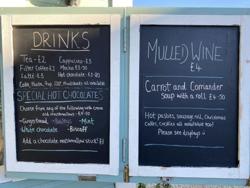 DRINKS
Tea - £2 Cappuccino - £3
Filter Coffee £2 Mocha £3.50
Latte £3 Hot chocolate - £3.50
SPECIAL HOT CHOCOLATES
Choose from any of the following with cream
and marshmallows - £4.50
- Gingerbread - Mint
- White chocolate - Biscoff
Add a chocolate marshmallow stick! £1
MULLED WINE
£4
Carrot and Coriander
Soup with a roll £4.50
Hot pasties, sausage roll, Christmas
Cakes, Cookies all available too!
Please see displays :)